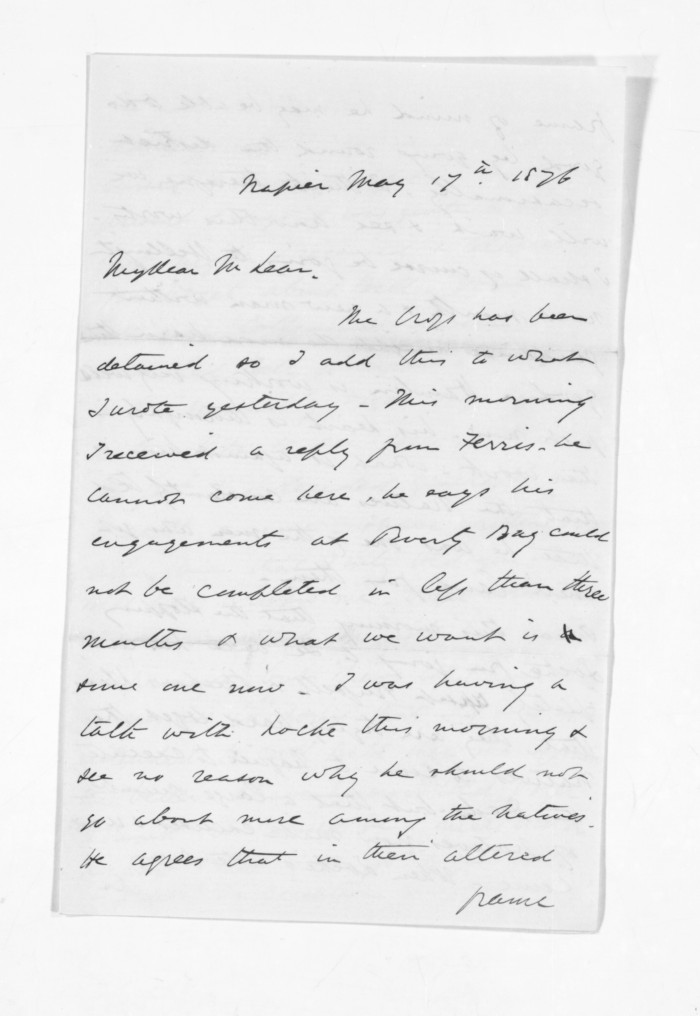 Napier May 17th. 1876
My dear McLean.
The has been
detained so I add this to what
I wrote yesterday - This morning
I received a reply from Ferris - he
cannot come here, he says his
engagements at Poverty Bay could
not be completed in less than three
months & what we want is
some one now - I was having a
talk with Locke this morning &
see no reason why he should not
go about more among the Natives.
He agrees that in their altered
frame